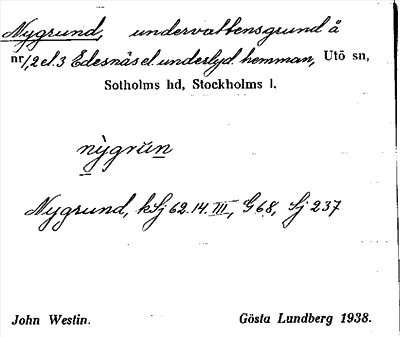 Nygrund, undervattensgrund å
nr 1, 2 el. 3 Edesnäs el. underlyd. hemman, Utö sn,
Sotholms hd, Stockholms l.
nỳgrŭn
Nygrund, kSj 62.14.III, G68, Sj 237
John Westin. Gösta Lundberg 1938.